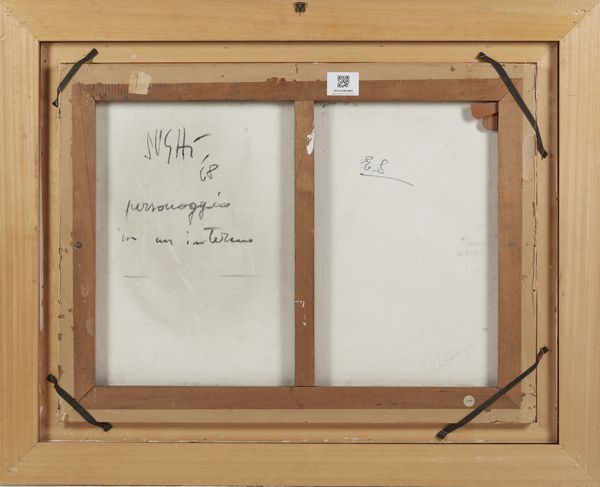 SUGHI
'68
personaggio
in un interno
E.S